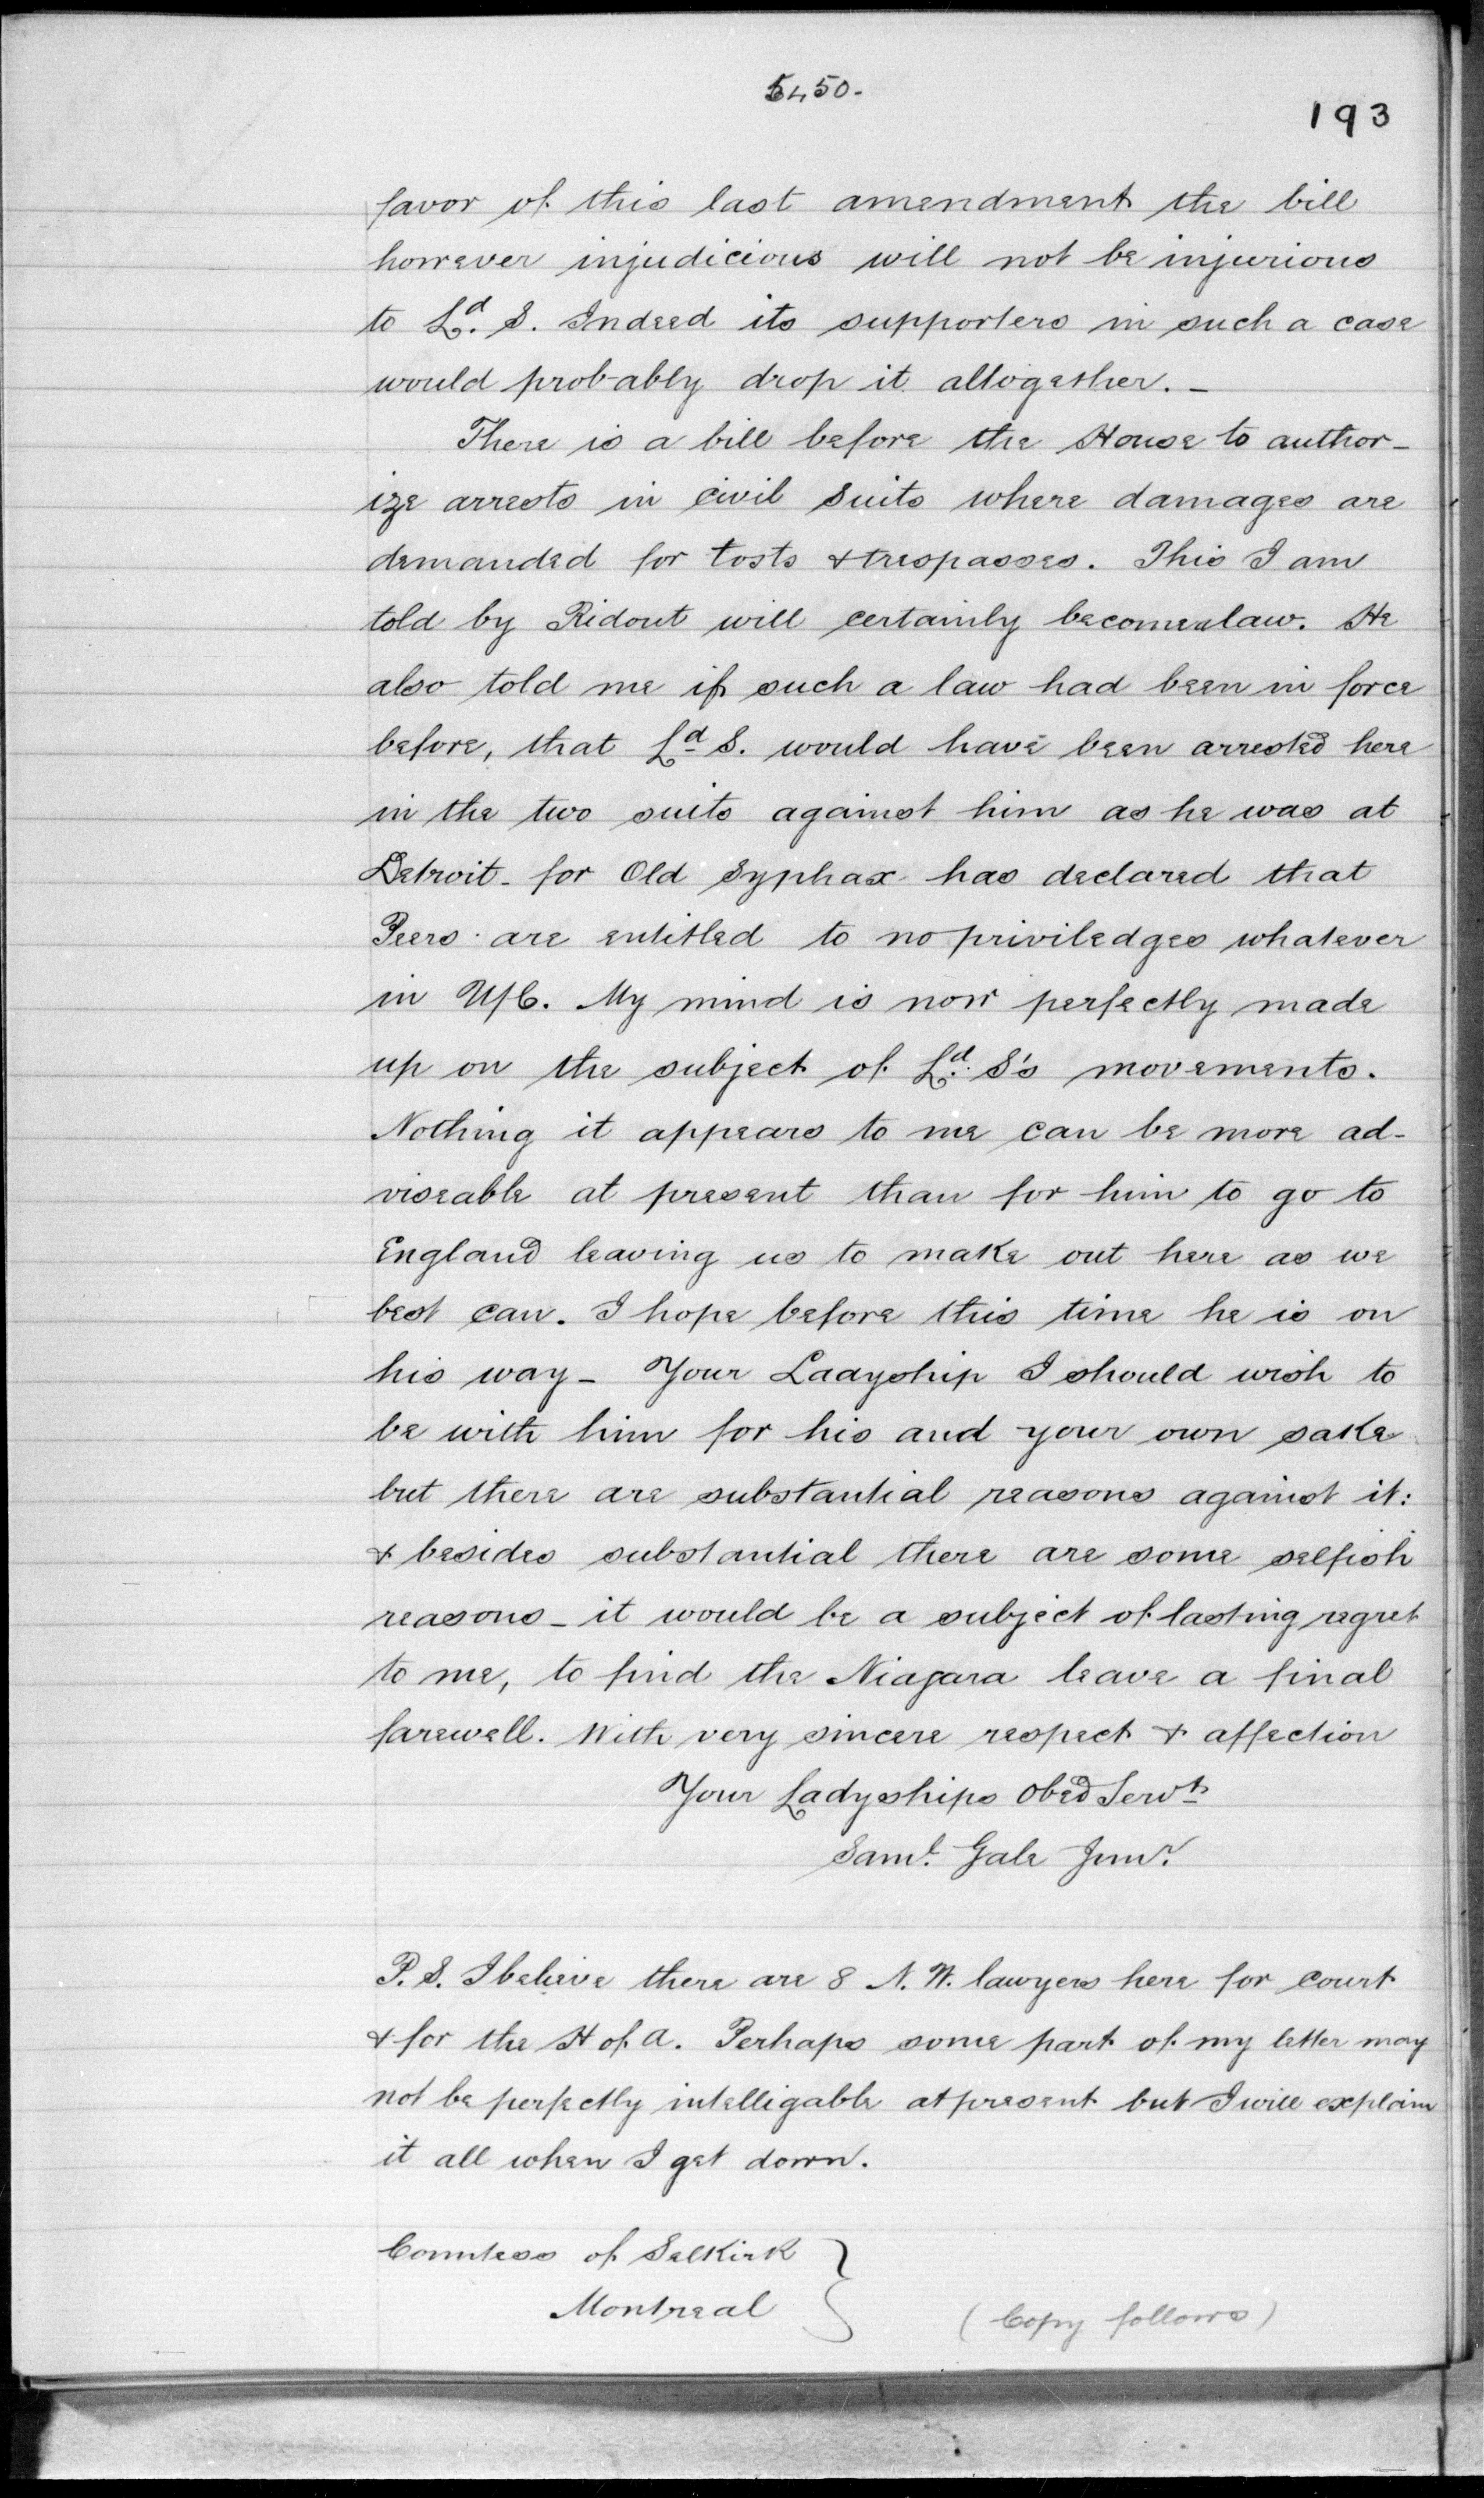 5450-
193
favor of this last amendment the bill
however injudicious will not be injurious
to Ld. S. Indeed its supporters in such a case
would probably drop it altogether. -
There is a bill before the House to author-
ize arrests in civil suits where damages are
demanded for tosts & trespasses. This I am
told by Ridout will certainly become a law. He
also told me if such a law had been in force
before, that Ld S. would have been arrested here
in the two suits against him as he was at
Detroit - for Old Syphax has declared that
Peers are entitled to no priviledges whatever
in U/C. My mind is now perfectly made
up on the subject of Ld. S's movements.
Nothing it appears to me can be more ad-
viseable at present than for him to go to
England leaving us to make out here as we
best can. I hope before this time he is on
his way - Your Ladyship I should wish to
be with him for his and your own sake
but there are substantial reasons against it:
& besides substantial there are some selfish
reasons - it would be a subject of lasting regret
to me, to find the Niagara leave a final
farewell. With very sincere respect & affection
Your Ladyships Obed Servt
Saml. Gale Junr.
P. S. I believe there are 8 N. W. lawyers here for court
& for the H of A. Perhaps some part of my letter may
not be perfectly intelligable at present but I will explain
it all when I get down.
Countess of Selkirk }
Montreal
(Copy follows)